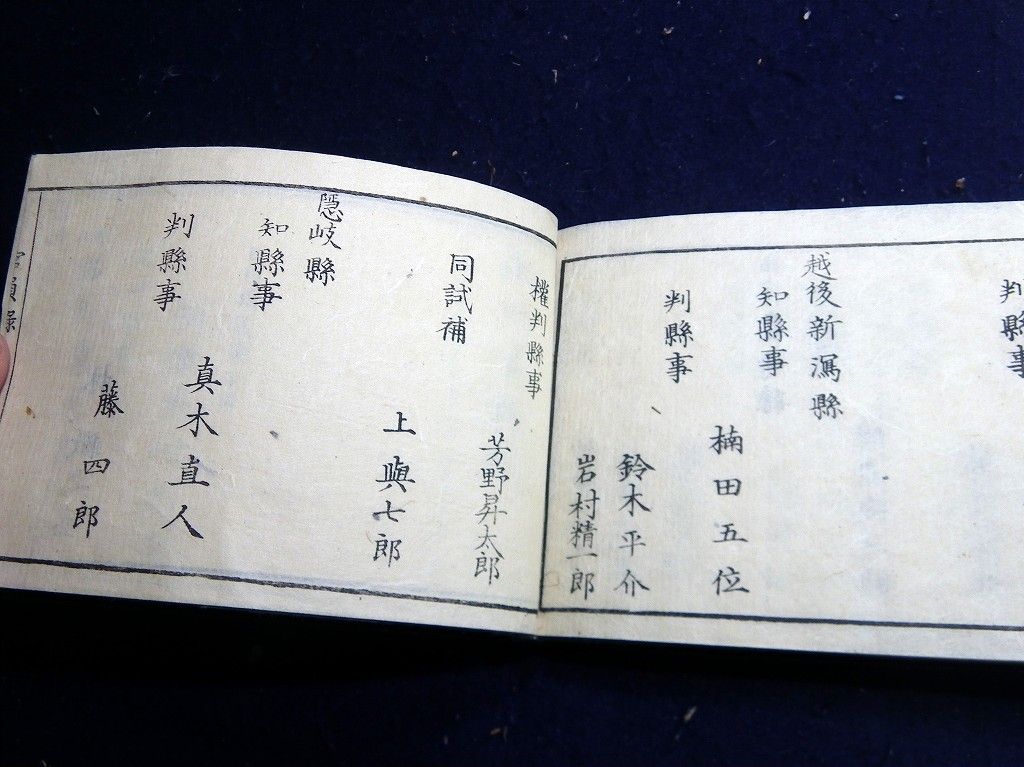 判縣事
越後新潟縣
知縣事
楠田五位
判縣事
鈴木平介
岩村精一郎
權判縣事
芳野昇太郎
同試補
上與七郎
隱岐縣
知縣事
真木直人
判縣事
藤四郎